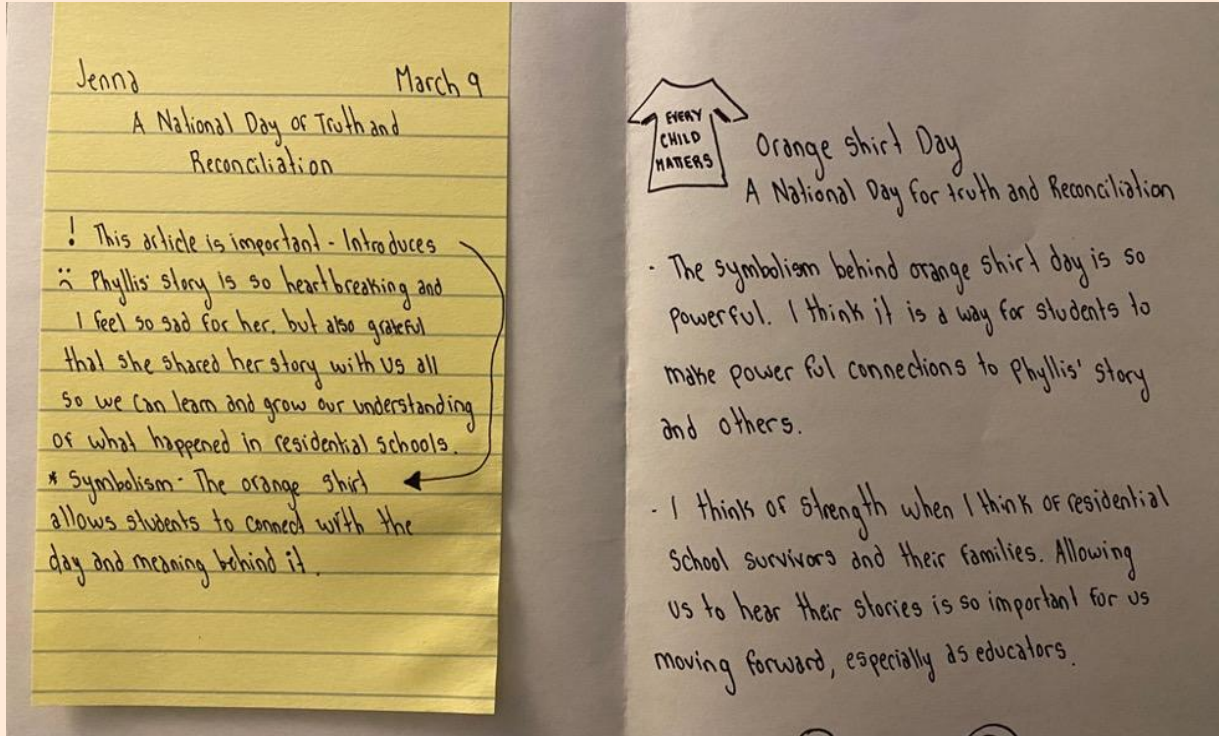 Jenna March 9
A National Day of Truth and
Reconciliation
! This article is important - Introduces
Phyllis' story is so heartbreaking and
I feel so sad for her. but also grateful
that she shared her story with us all
so we can learn and grow our understanding
of what happened in residential schools.
* Symbolism - The orange shirt
allows students to connect with the
day and meaning behind it.
EVERY
CHILD
MATTERS
Orange Shirt Day
A National Day for truth and Reconciliation
· The symbolism behind orange shirt day is so
powerful. I think it is a way for students to
make power ful connections to Phyllis' story
and others.
· I think of strength when I think of residential
school survivors and their families. Allowing
us to hear their stories is so important for us
moving forward, especially as educators.